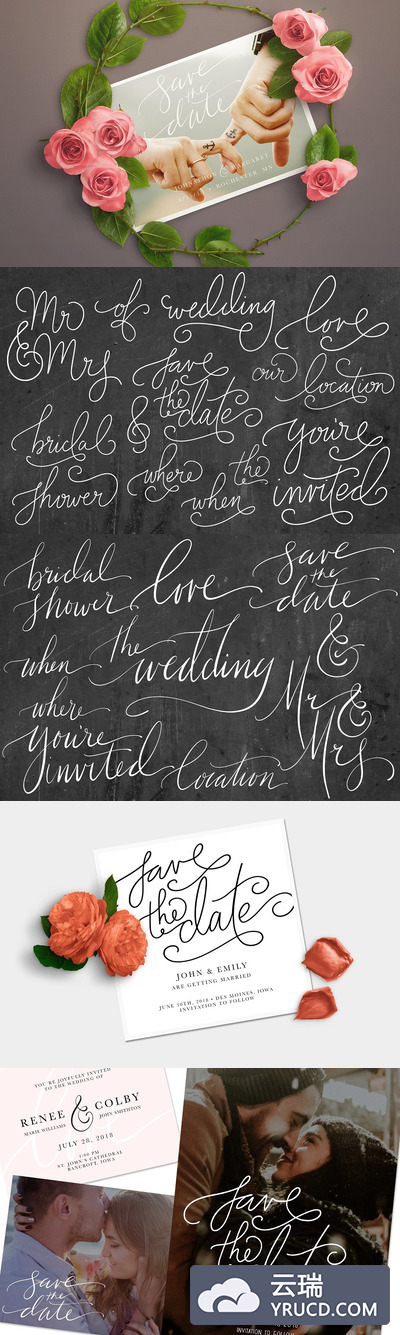 save
the
date
& MARGARET
ROCHESTER, MN
Mr
&Mrs
of
wedding
love
save
the
date
our location
bridal
shower
&
where
when
the
you're
invited
bridal
shower
love
save
the
date
when
the
wedding
&
where
Mr
&
Mrs
you're
invited
location
save
the
date
JOHN & EMILY
ARE GETTING MARRIED
JUNE 30TH, 2018 • DES MOINES, IOWA
INVITATION TO FOLLOW
YOU'RE JOYFULLY INVITED
TO THE WEDDING OF
RENEE & COLBY
MARIE WILLIAMS
JOHN SMITHTON
JULY 28, 2018
ST. JOHN'S CATHEDRAL
BANCROFT, IOWA
save
the
date
save
the
INVITATION TO FOLLOW
云瑞
YRUCD.COM